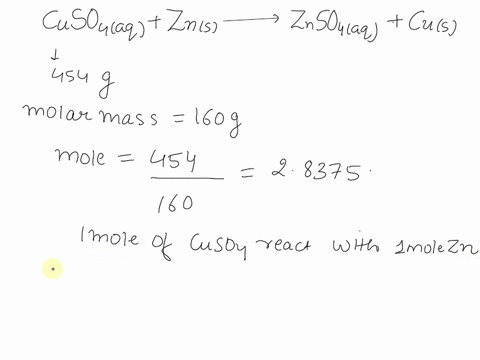 CuSO4(aq) + Zn(s) ⟶ ZnSO4(aq) + Cu(s)
↓
454 g
molar mass = 160g
mole = 454/160 = 2.8375.
1mole of CuSO4 react with 1mole Zn